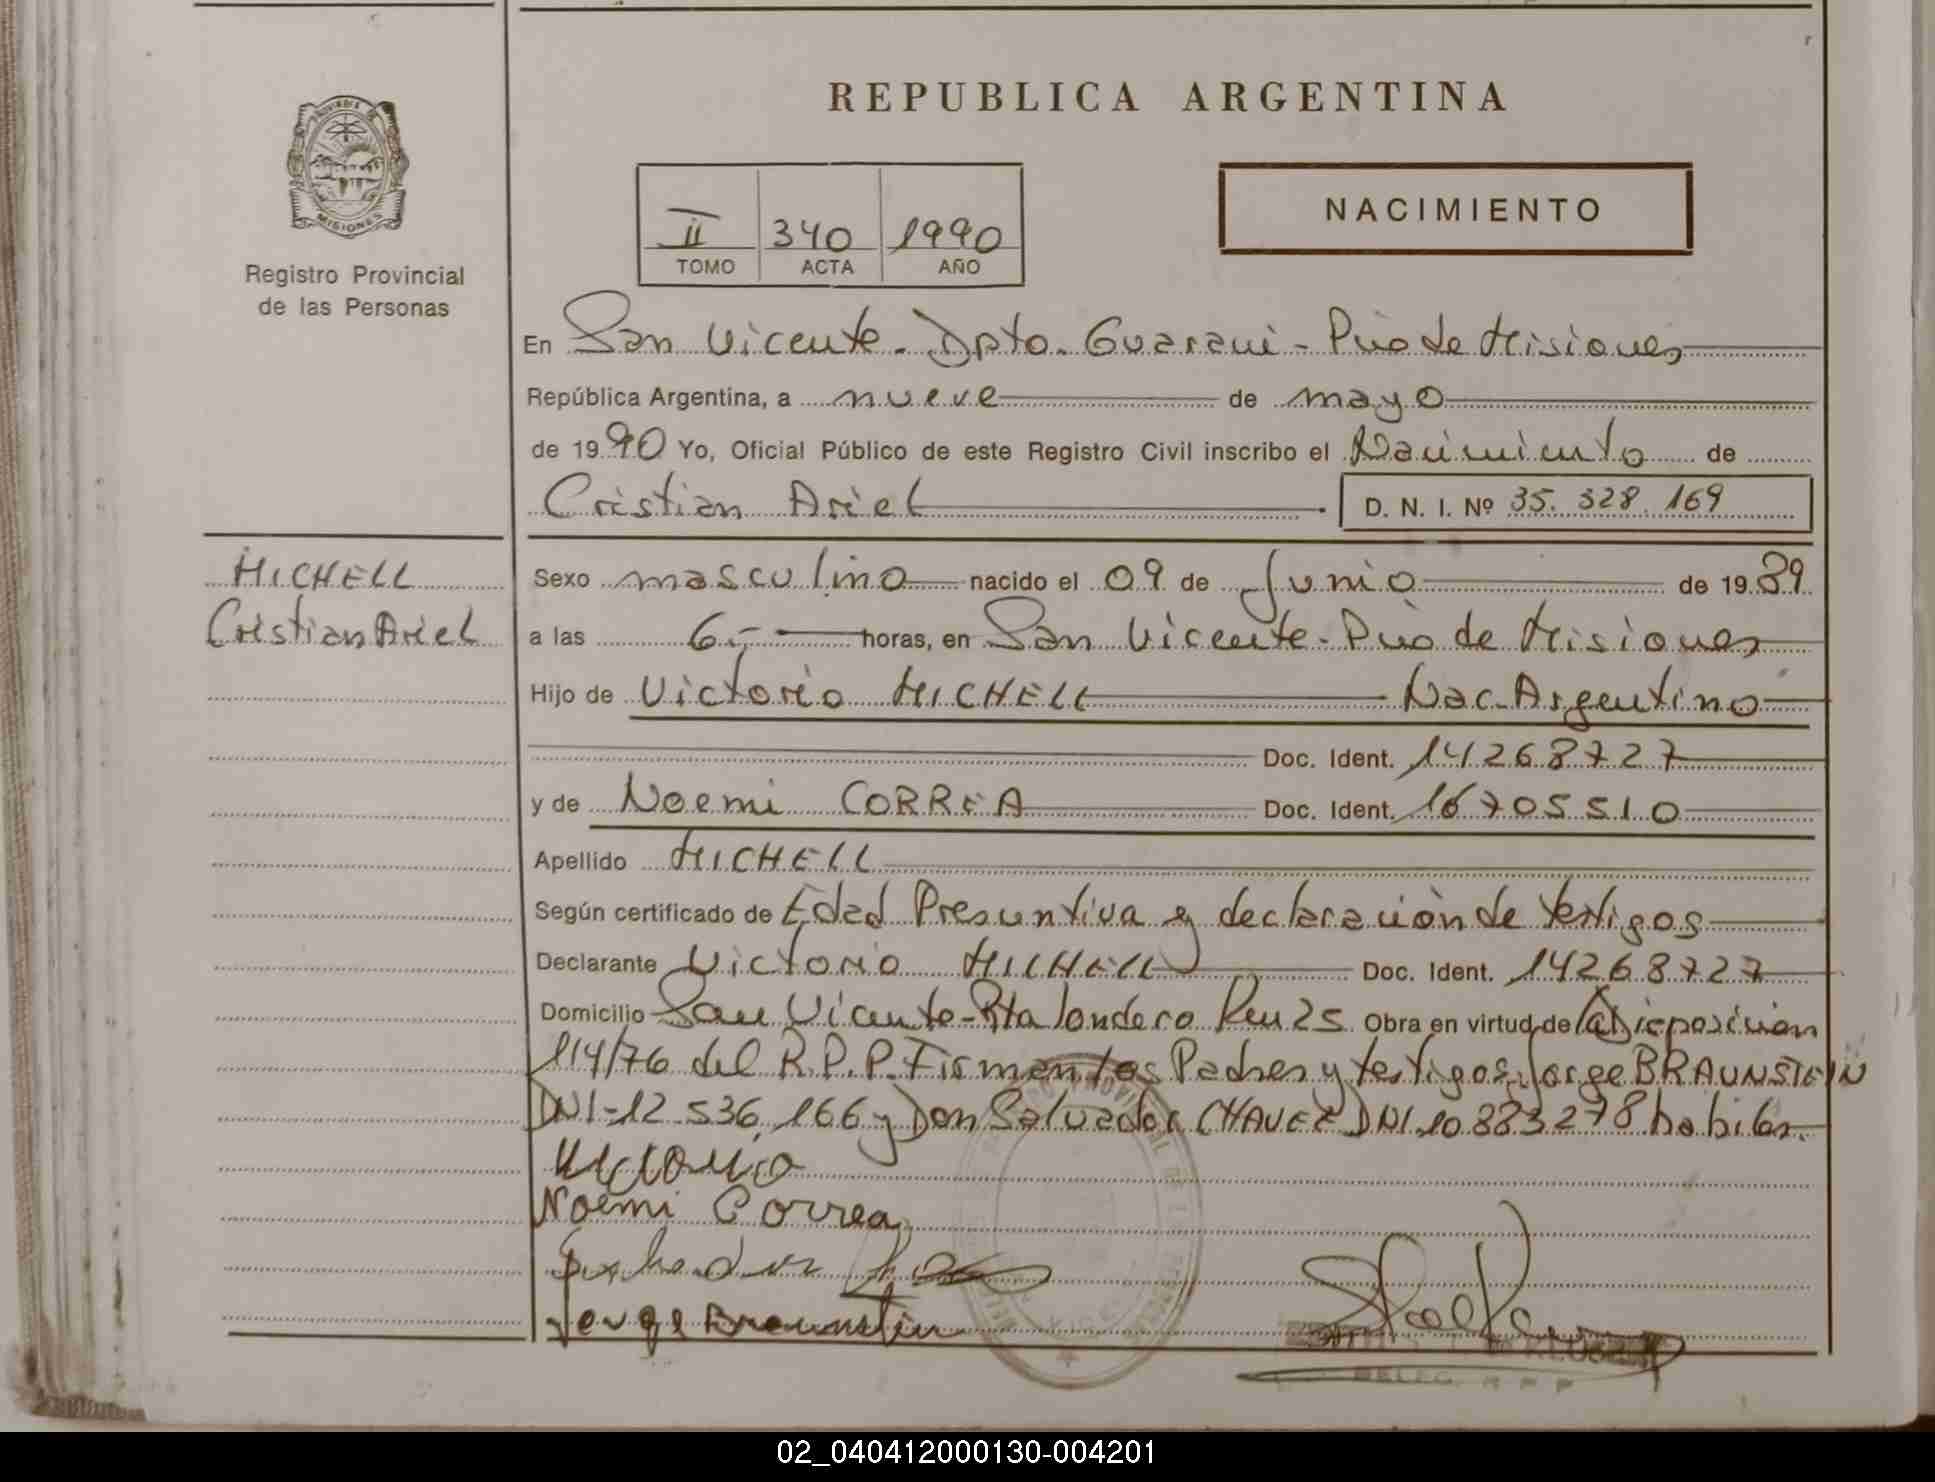 REPUBLICA ARGENTINA
PROVINCIA DE MISIONES
Registro Provincial
de las Personas
II 340 1990
TOMO ACTA AÑO
NACIMIENTO
En San Vicente - Dpto. Guarani - Pcia de Misiones
República Argentina, a nueve de mayo
de 1990 Yo, Oficial Público de este Registro Civil inscribo el Nacimiento de
Cristian Ariel D. N. I. Nº 35.328.169
MICHELL
Cristian Ariel
Sexo masculino nacido el 09 de Junio de 1989
a las 6,- horas, en San Vicente - Pcia de Misiones
Hijo de Victorio MICHELL Nac. Argentino
Doc. Ident. 14268727
y de Noemi CORREA Doc. Ident. 16705510
Apellido MICHELL
Según certificado de Edad Presuntiva y declaración de testigos
Declarante Victorio MICHELL Doc. Ident. 14268727
Domicilio San Vicente - Rta Londero Km 25 Obra en virtud de la Disposicion
114/76 del R.P.P. Firman los Padres y testigos Jorge BRAUNSTEIN
DNI-12.536.166 y Don Salvador CHAVEZ DNI 10.883.278 habiles.
Victorio
Noemi Correa
Jorge Braunstein
DELEG. R P P
02_040412000130-004201